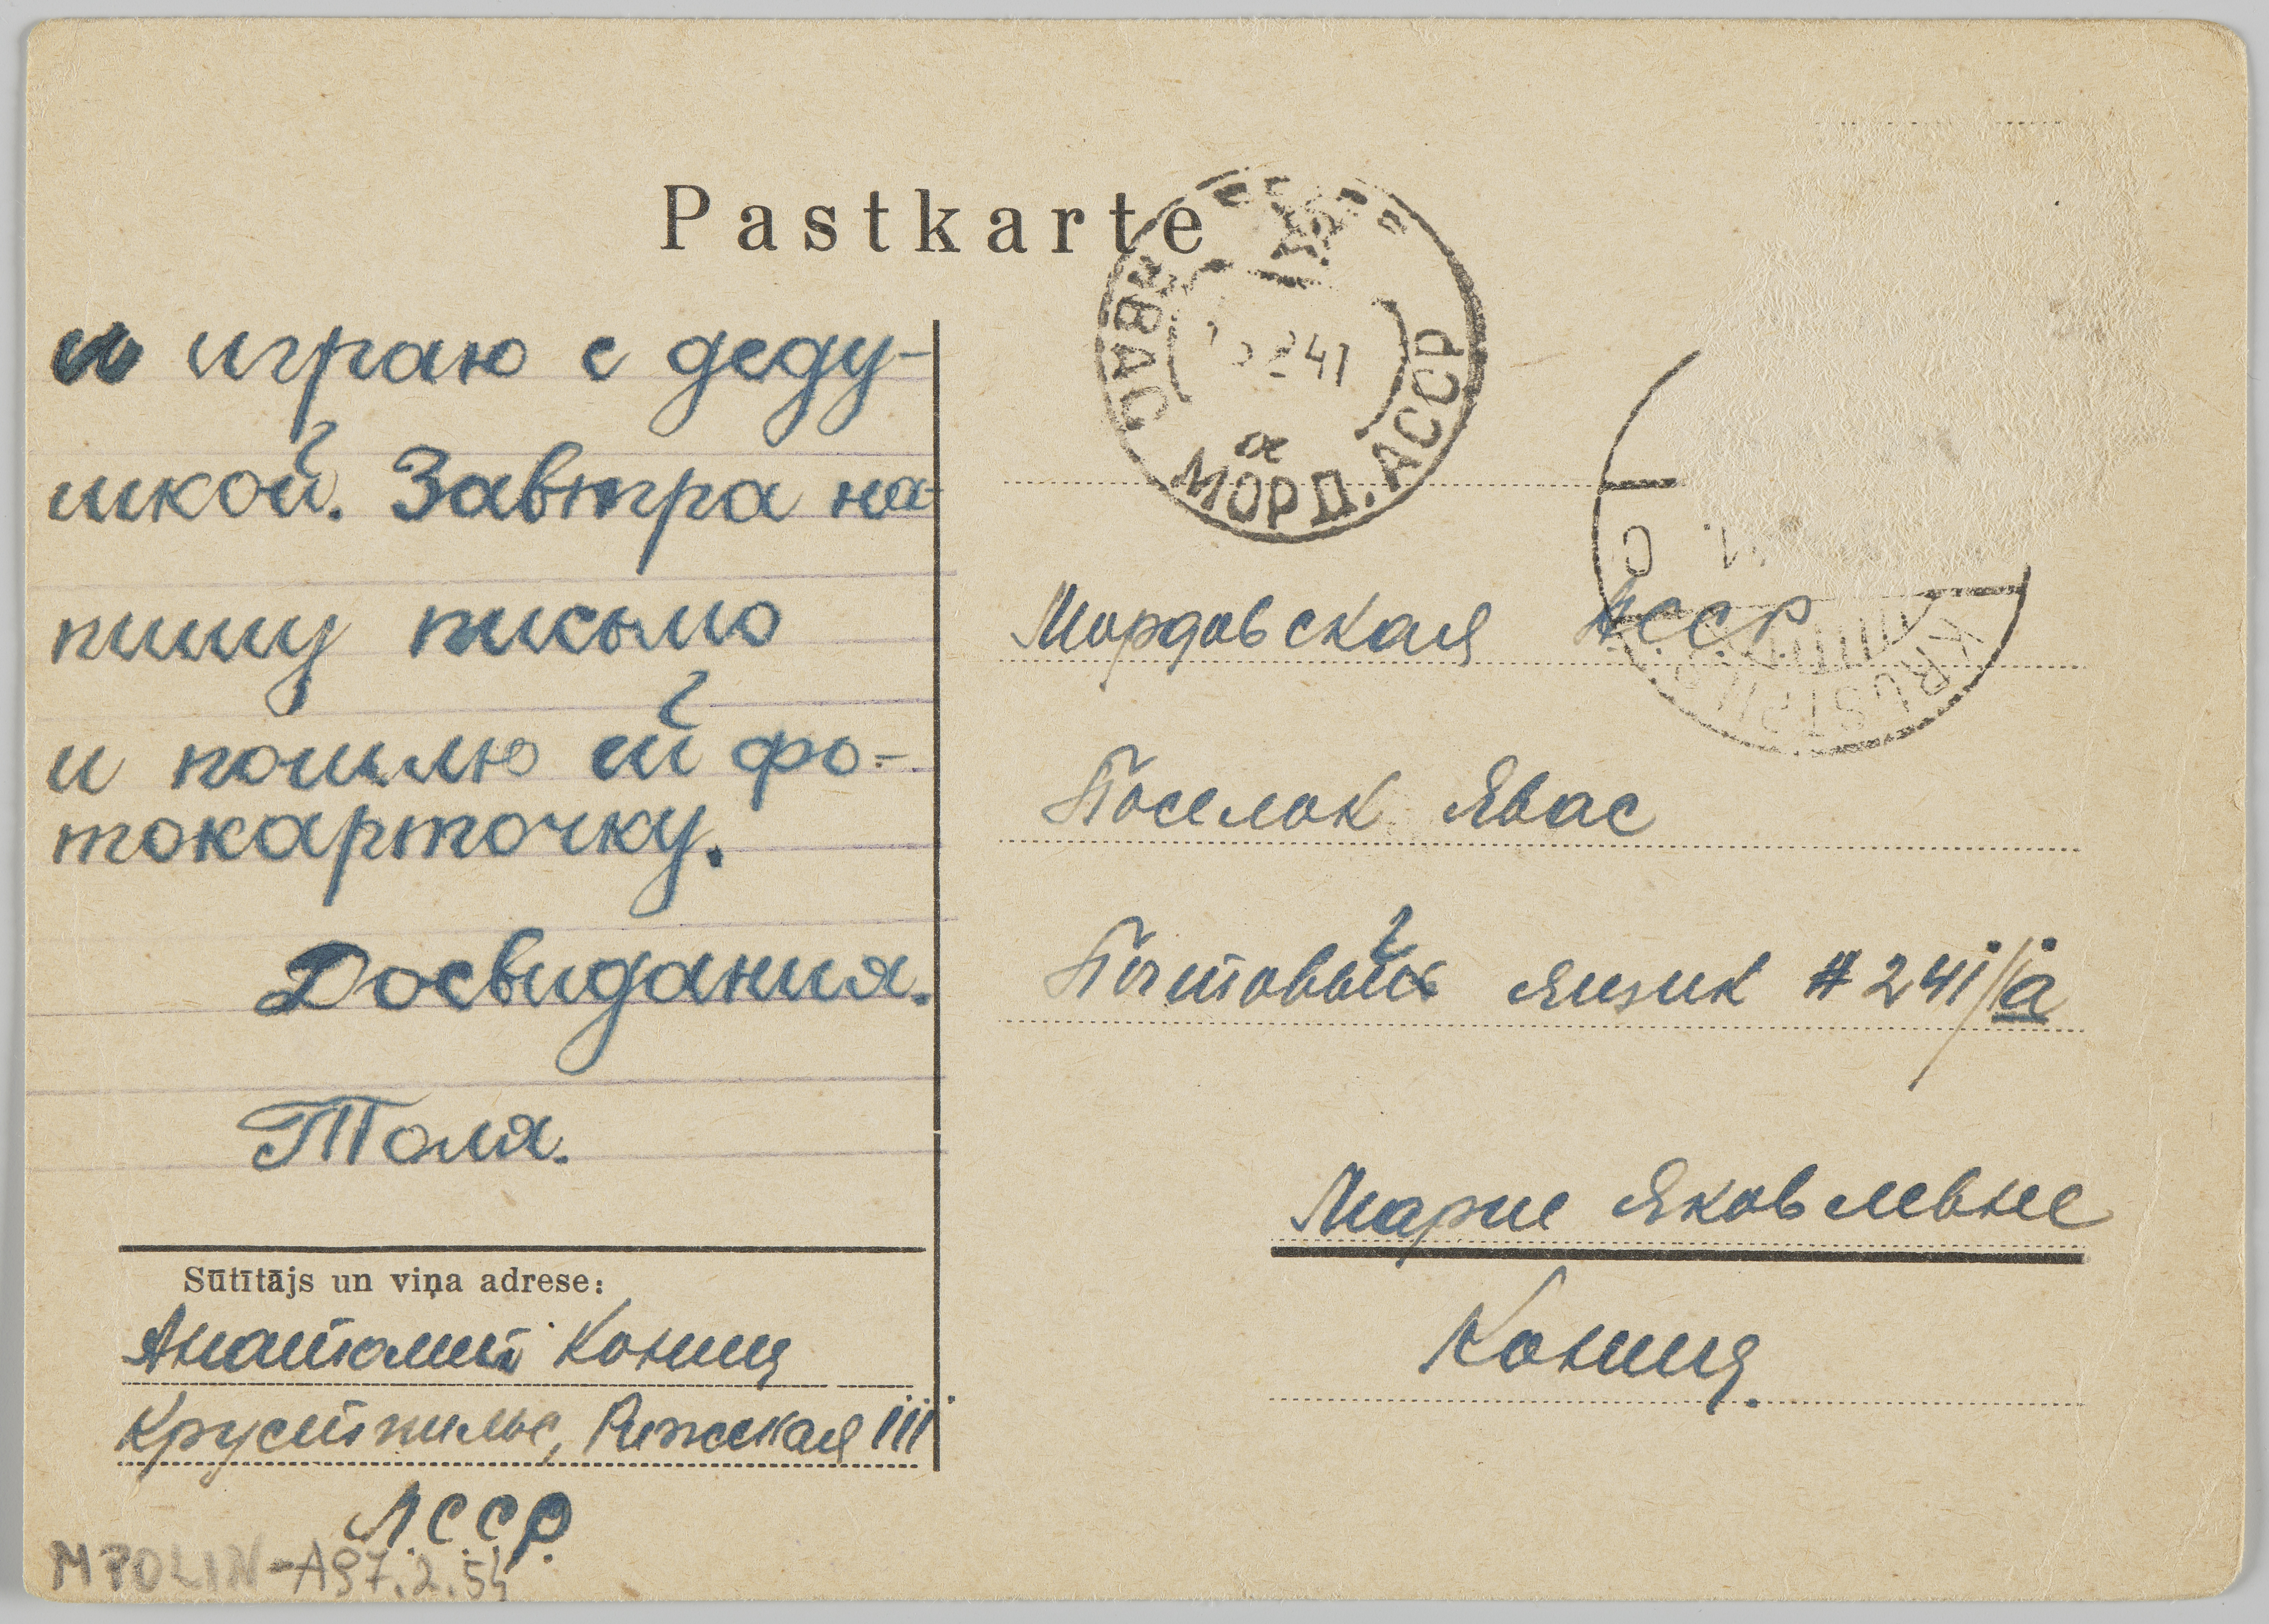 Pastkarte
и играю с деду-
шкой. Завтра на-
пишу письмо
и пошлю ей фо-
токарточку.
Досвидания.
Толя.
Sūtītājs un viņa adrese:
Анатолий Кониц
Крустпилс, Рижская 111
Л.С.С.Р.
MPOLIN-A97.2.54
ЯВАС
41
а
МОРД. АССР
KRUSTPILS
Мордовская А.С.С.Р.
Поселок Явас
Почтовый ящик # 241/1а
Марие Яковлевне
Кониц.